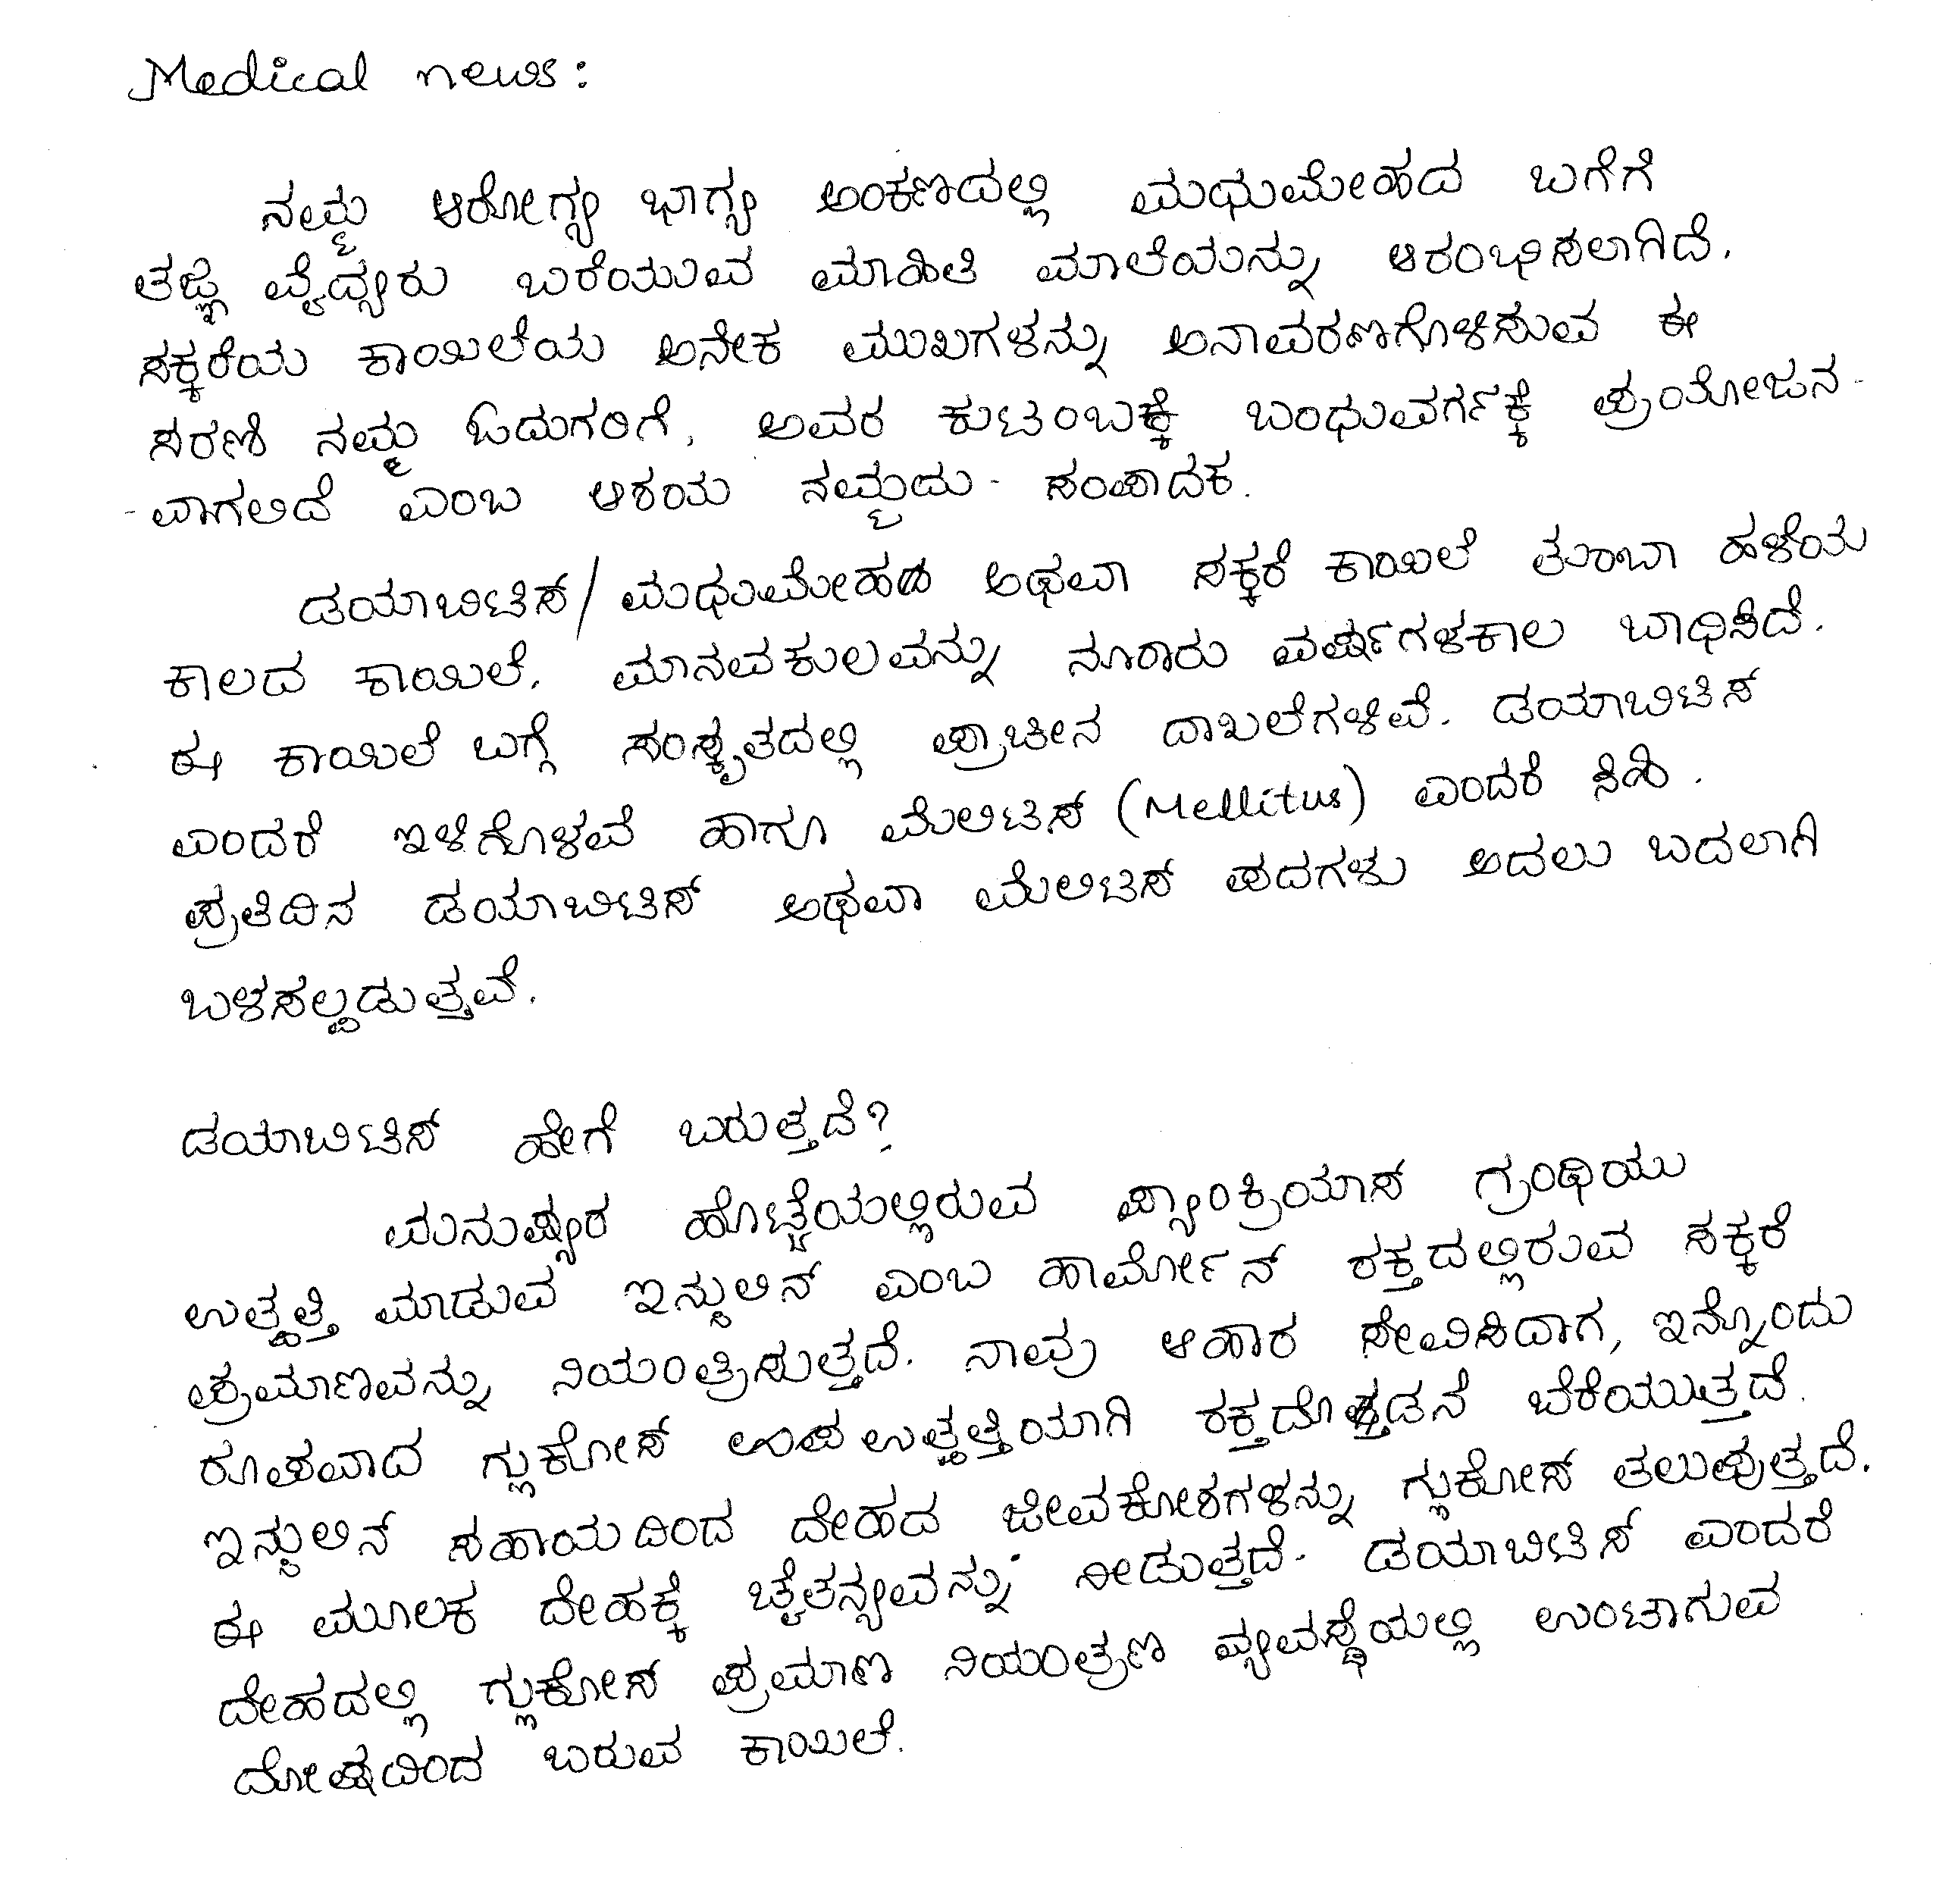 Medical news:
ನಮ್ಮ ಆರೋಗ್ಯ ಭಾಗ್ಯ ಅಂಕಣದಲ್ಲಿ ಮಧುಮೇಹದ ಬಗೆಗೆ
ತಜ್ಞ ವೈದ್ಯರು ಬರೆಯುವ ಮಾಹಿತಿ ಮಾಲೆಯನ್ನು ಆರಂಭಿಸಲಾಗಿದೆ.
ಸಕ್ಕರೆಯ ಕಾಯಿಲೆಯ ಅನೇಕ ಮುಖಗಳನ್ನು ಅನಾವರಣಗೊಳಿಸುವ ಈ
ಸರಣಿ ನಮ್ಮ ಓದುಗರಿಗೆ, ಅವರ ಕುಟಂಬಕ್ಕೆ ಬಂಧುವರ್ಗಕ್ಕೆ ಪ್ರಯೋಜನ-
-ವಾಗಲಿದೆ ಎಂಬ ಆಶಯ ನಮ್ಮದು - ಸಂಪಾದಕ.
ಡಯಾಬಿಟಿಸ್/ಮಧುಮೇಹ ಅಥವಾ ಸಕ್ಕರೆ ಕಾಯಿಲೆ ತುಂಬಾ ಹಳೆಯ
ಕಾಲದ ಕಾಯಿಲೆ. ಮಾನವಕುಲವನ್ನು ನೂರಾರು ವರ್ಷಗಳಕಾಲ ಬಾಧಿಸಿದೆ.
ಈ ಕಾಯಿಲೆ ಬಗ್ಗೆ ಸಂಸ್ಕೃತದಲ್ಲಿ ಪ್ರಾಚೀನ ದಾಖಲೆಗಳಿವೆ. ಡಯಾಬಿಟಿಸ್
ಎಂದರೆ ಇಳಿಗೊಳವೆ ಹಾಗೂ ಮೆಲಿಟಿಸ್ (Mellitus) ಎಂದರೆ ಸಿಹಿ.
ಪ್ರತಿದಿನ ಡಯಾಬಿಟಿಸ್ ಅಥವಾ ಮೆಲಿಟಿಸ್ ಪದಗಳು ಅದಲು ಬದಲಾಗಿ
ಬಳಸಲ್ಪಡುತ್ತವೆ.
ಡಯಾಬಿಟಿಸ್ ಹೇಗೆ ಬರುತ್ತದೆ?
ಮನುಷ್ಯರ ಹೊಟ್ಟೆಯಲ್ಲಿರುವ ಪ್ಯಾಂಕ್ರಿಯಾಸ್ ಗ್ರಂಥಿಯು
ಉತ್ಪತ್ತಿ ಮಾಡುವ ಇನ್ಸುಲಿನ್ ಎಂಬ ಹಾರ್ಮೋನ್ ರಕ್ತದಲ್ಲಿರುವ ಸಕ್ಕರೆ
ಪ್ರಮಾಣವನ್ನು ನಿಯಂತ್ರಿಸುತ್ತದೆ. ನಾವು ಆಹಾರ ಸೇವಿಸಿದಾಗ, ಇನ್ನೊಂದು
ರೂಪವಾದ ಗ್ಲುಕೋಸ್ ಉಪಉತ್ಪತ್ತಿಯಾಗಿ ರಕ್ತದೊಡನೆ ಬೆರೆಯುತ್ತದೆ.
ಇನ್ಸುಲಿನ್ ಸಹಾಯದಿಂದ ದೇಹದ ಜೀವಕೋಶಗಳನ್ನು ಗ್ಲುಕೋಸ್ ತಲುಪುತ್ತದೆ.
ಈ ಮೂಲಕ ದೇಹಕ್ಕೆ ಚೈತನ್ಯವನ್ನು ನೀಡುತ್ತದೆ. ಡಯಾಬಿಟಿಸ್ ಎಂದರೆ
ದೇಹದಲ್ಲಿ ಗ್ಲುಕೋಸ್ ಪ್ರಮಾಣ ನಿಯಂತ್ರಣ ವ್ಯವಸ್ಥೆಯಲ್ಲಿ ಉಂಟಾಗುವ
ದೋಷದಿಂದ ಬರುವ ಕಾಯಿಲೆ.